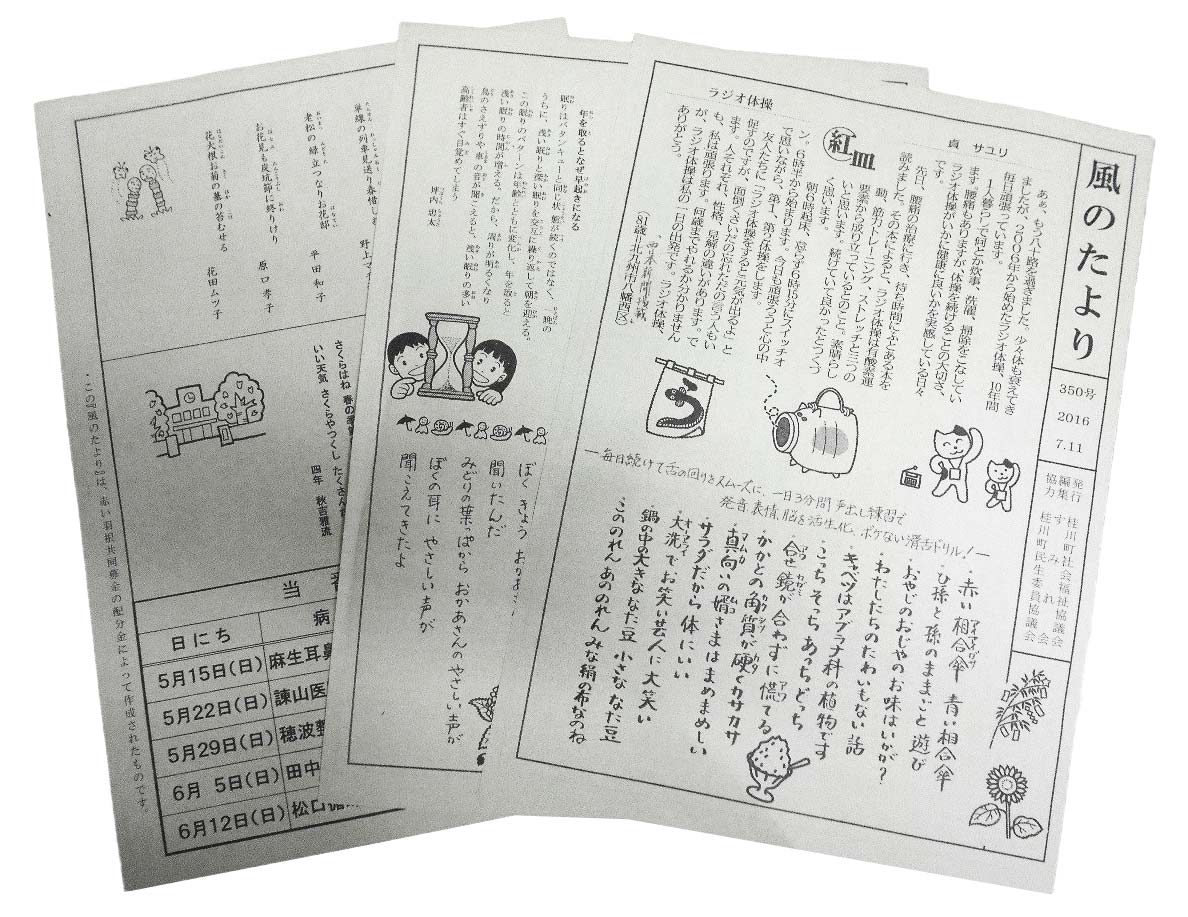 風のたより
350号
2016
7.11
発行 桂川町社会福祉協議会
編集 すみれ会
協力 桂川町民生委員協議会
ラジオ体操
貞 サユリ
紅皿
ああ、もう八十路を過ぎました。少々体も衰えてき
ましたが、2006年から始めたラジオ体操、10年間
毎日頑張っています。
1人暮らしで何とか炊事、洗濯、掃除をこなしてい
ます。腰痛もありますが、体操を続けることの大切さ、
ラジオ体操がいかに健康に良いかを実感している日々
です。
先日、腰痛の治療に行き、待ち時間にふとある本を
読みました。その本によると、ラジオ体操は有酸素運
動、筋力トレーニング、ストレッチと三つの
要素から成り立っているとのこと。素晴らし
いと思います。続けていて良かったとつくづ
く思います。
朝6時起床、忘らず6時15分にスイッチオ
ン。6時半から始まります。今日も頑張ろうと心の中
で思いながら、第1、第2体操をします。
友人たちに「ラジオ体操をすると元気が出るよ」と
促すのですが、「面倒くさいだの忘れただの言う人もい
ます。人それぞれ、性格、見解の違いがあります。で
も、私は頑張ります。何歳までやれるか分かりません
が、ラジオ体操は私の一日の出発です。ラジオ体操、
ありがとう。
(81歳=北九州市八幡西区)
西日本新聞掲載
う
―毎日続けて舌の回りをスムーズに、一日3分間声出し練習で
発音、表情、脳を活生化、ボケない滑舌ドリル！―
・赤い相合傘 青い相合傘
・ひ孫と孫のままごと遊び
・おやじのおじやのお味はいかが？
・わたしたちのたわいもない話
・キャベツはアブラナ科の植物です
・こっち そっち あっち どっち
・合せ鏡が 合わずに慌てる
・かかとの角質が硬くカサカサ
・真向いの婿さまはまめまめしい
・サラダだから 体にいい
・大洗でお笑い芸人に大笑い
鍋の中の大きななた豆 小さななた豆
こののれん あののれん みな絹の布なのね
年を取るとなぜ早起きになる
眠りはバタンキューと同じ状態が続くのではなく、一晩の
うちに、浅い眠りと深い眠りを交互に繰り返して朝を迎える。
この眠りのパターンは年齢とともに変化し、年を取ると
浅い眠りの時間が増える。だから、周りが明るくなり
鳥のさえずりや車の音が聞こえると、浅い眠りの多い
高齢者はすぐ目覚めてしまう
坪内忠太
ぼく きょう
聞いたんだ
みどりの葉っぱから おかあさんのやさしい声が
ぼくの耳に やさしい声が
聞こえてきたよ
単線の列車見送り春惜し
野上マ
老松の緑立つなりお花邸
平田和子
お花見も炭坑節に終りけり
原口孝子
花大根お菊の墓の苔むせる
花田ムツ子
さくらはね 春の
いい天気 さくらやつくし たくさん
四年 秋吉雅流
当
日にち
病
5月15日(日) 麻生耳鼻
5月22日(日) 諫山医
5月29日(日) 穂波整
6月 5日(日) 田中
6月12日(日) 松口循
・この『風のたより』は、赤い羽根共同募金の配分金によって作成されたものです。